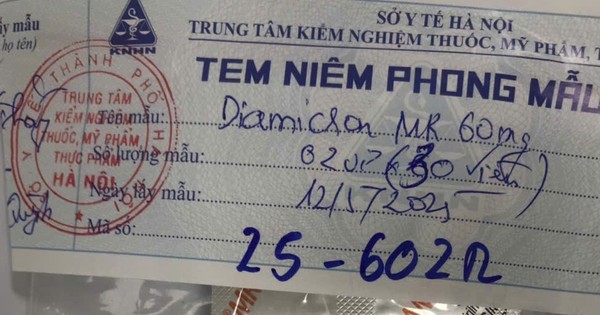 SỞ Y TẾ HÀ NỘI
TRUNG TÂM KIỂM NGHIỆM THUỐC, MỸ PHẨM, T
ấy mẫu
họ tên)
KNHN
TEM NIÊM PHONG MẪU
SỞ Y TẾ THÀNH PHỐ HÀ NỘI
TRUNG TÂM
KIỂM NGHIỆM
THUỐC, MỸ PHẨM
THỰC PHẨM
HÀ NỘI
Tên mẫu: Diamicron MR 60mg
Số lượng mẫu: (30 viên)
Ngày lấy mẫu: 12/5/2025
Mã số: 25-602